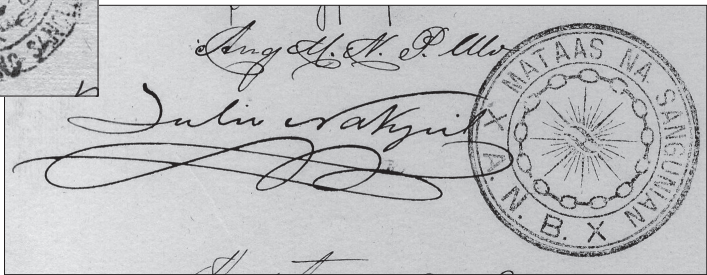 Ang M. N. P. Ulo
Julio Nakpil
MATAAS NA SANGUNIAN
X A. N. B. X